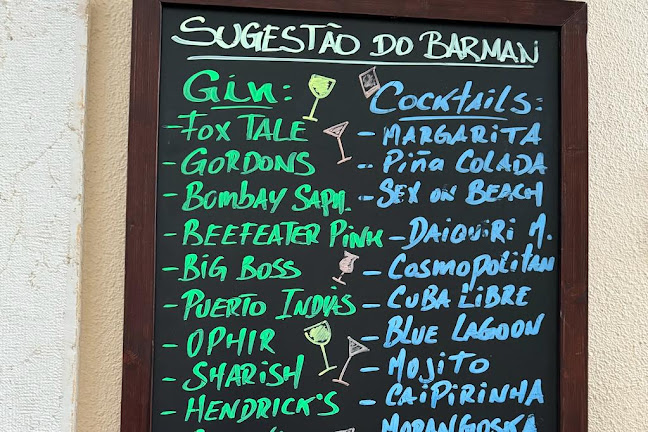 SUGESTÃO DO BARMAN
Gin:
- FOX TALE
- GORDONS
- BOMBAY SAPH.
- BEEFEATER PINK
- BIG BOSS
- PUERTO INDIAS
- OPHIR
- SHARISH
- HENDRICK'S
COCKTAILS:
- MARGARITA
- PIÑA COLADA
- SEX ON BEACH
- DAIQUIRI M.
- COSMOPOLITAN
- CUBA LIBRE
- BLUE LAGOON
- MOJITO
- CAIPIRINHA
MORANGOSKA